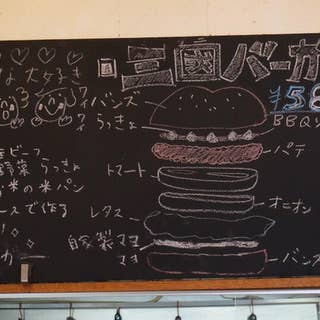 な大好き
三國バーガ
¥58
BBQソ
バンズ
らっきょ
パテ
トマート
オニオン
レタス
自家製マヨ
マヨ
バンズ
ビーフ
らっきょ
米の米パン
ースで作る